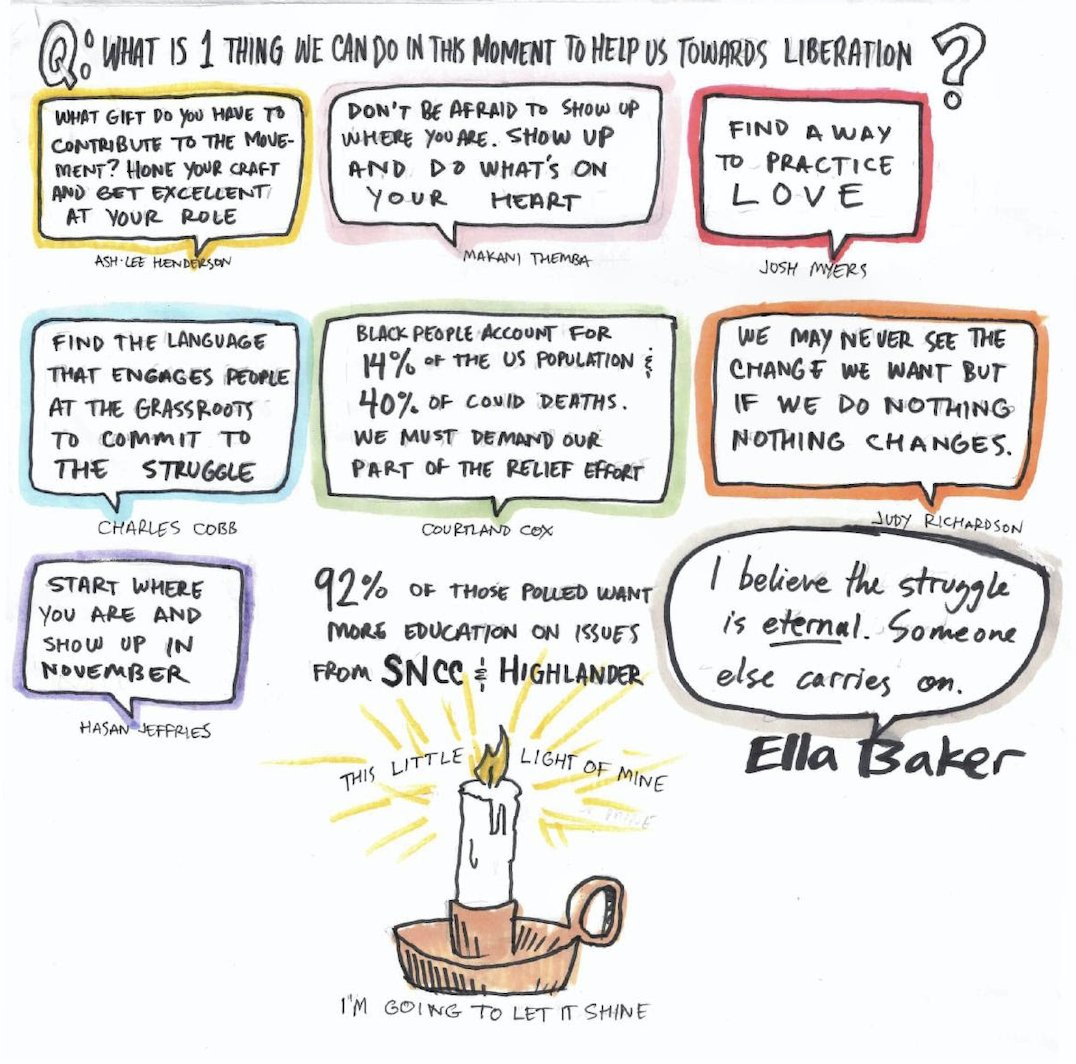 Q: WHAT IS 1 THING WE CAN DO IN THIS MOMENT TO HELP US TOWARDS LIBERATION ?
WHAT GIFT DO YOU HAVE TO
CONTRIBUTE TO THE MOVE-
MENT? HONE YOUR CRAFT
AND GET EXCELLENT
AT YOUR ROLE
ASH-LEE HENDERSON
DON'T BE AFRAID TO SHOW UP
WHERE YOU ARE. SHOW UP
AND DO WHAT'S ON
YOUR HEART
MAKANI THEMBA
FIND A WAY
TO PRACTICE
LOVE
JOSH MYERS
FIND THE LANGUAGE
THAT ENGAGES PEOPLE
AT THE GRASSROOTS
TO COMMIT TO
THE STRUGGLE
CHARLES COBB
BLACK PEOPLE ACCOUNT FOR
14% OF THE US POPULATION &
40% OF COVID DEATHS.
WE MUST DEMAND OUR
PART OF THE RELIEF EFFORT
COURTLAND COX
WE MAY NEVER SEE THE
CHANGE WE WANT BUT
IF WE DO NOTHING
NOTHING CHANGES.
JUDY RICHARDSON
START WHERE
YOU ARE AND
SHOW UP IN
NOVEMBER
HASAN JEFFRIES
92% OF THOSE POLLED WANT
MORE EDUCATION ON ISSUES
FROM SNCC & HIGHLANDER
I believe the struggle
is eternal. Someone
else carries on.
Ella Baker
THIS LITTLE LIGHT OF MINE
I'M GOING TO LET IT SHINE